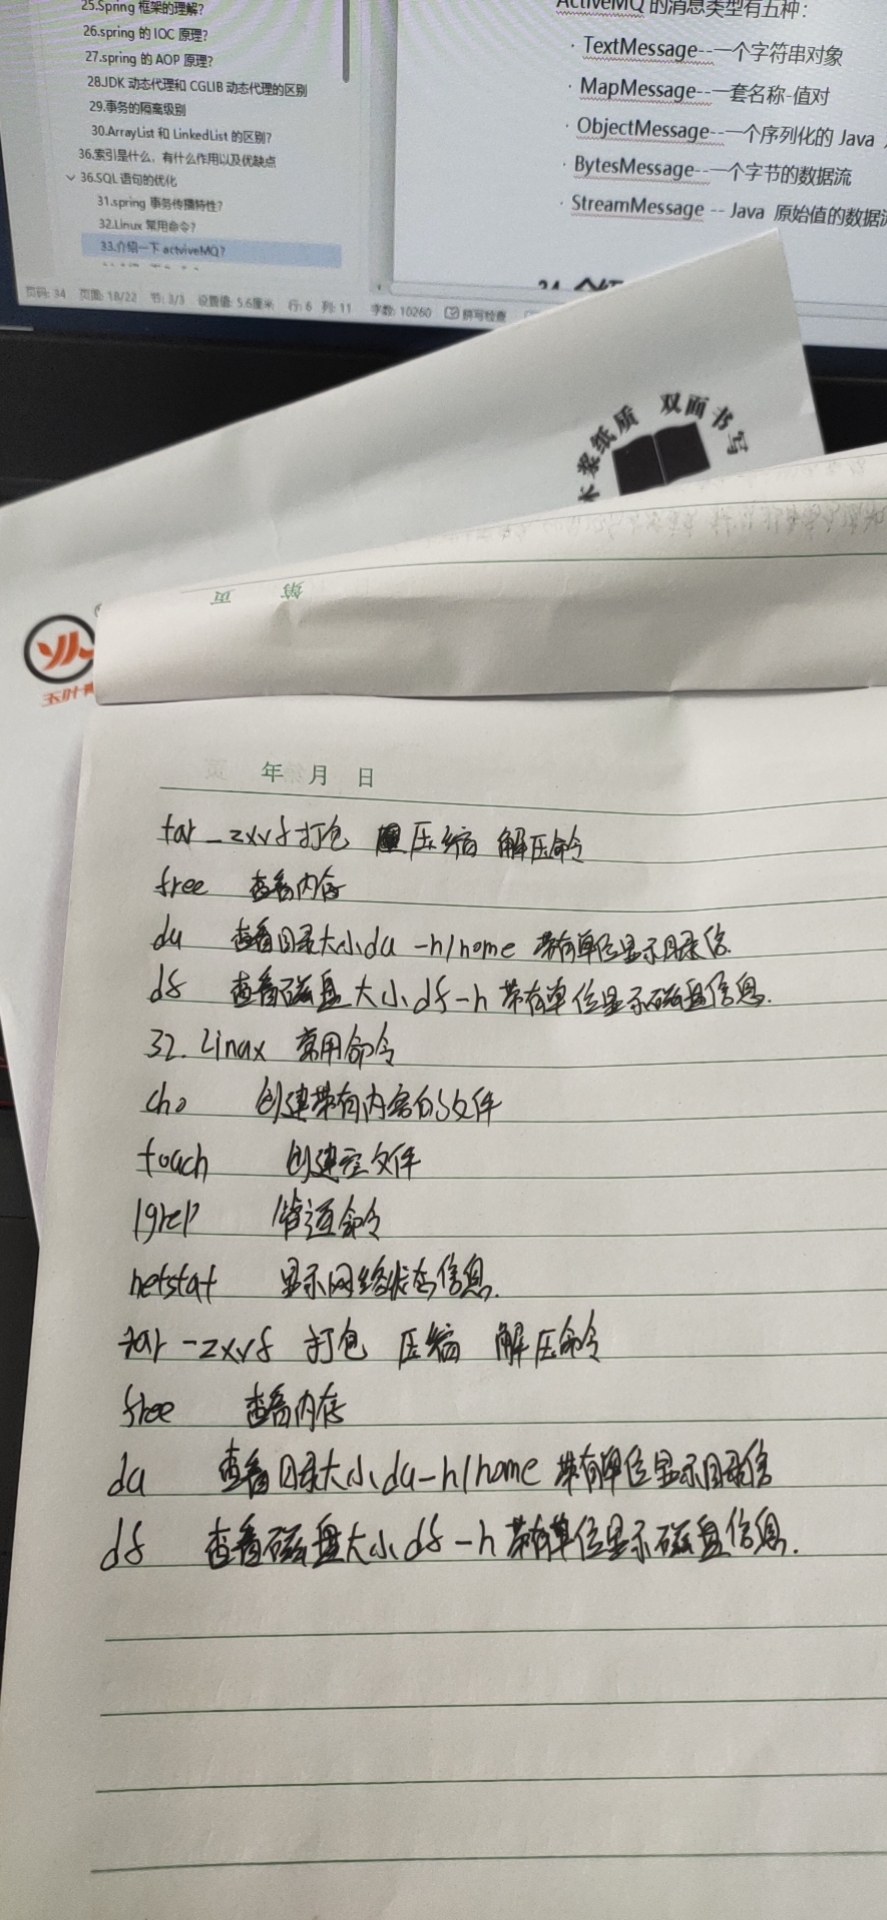 25.Spring 框架的理解?
26.spring 的 IOC 原理?
27.spring 的 AOP 原理?
28.JDK 动态代理和 CGLIB 动态代理的区别
29.事务的隔离级别
30.ArrayList 和 LinkedList 的区别?
36.索引是什么，有什么作用以及优缺点
36.SQL 语句的优化
31.spring 事务传播特性?
32.Linux 常用命令?
33.介绍一下 activeMQ?
页码: 34 页面: 18/22 节: 3/3 设置值: 5.6厘米 行: 6 列: 11 字数: 10260 拼写检查
ActiveMQ 的消息类型有五种：
· TextMessage--一个字符串对象
· MapMessage--一套名称-值对
· ObjectMessage--一个序列化的 Java
· BytesMessage--一个字节的数据流
· StreamMessage -- Java 原始值的数据流
木浆纸质 双面书写
第 页
玉叶
年 月 日
tar -zxvf 打包 压缩 解压命令
free 查看内存
du 查看目录大小 du -h/home 带有单位显示目录信
df 查看磁盘大小 df -h 带有单位显示磁盘信息.
32. Linux 常用命令
cho 创建带有内容的文件
touch 创建空文件
|grep 管道命令
netstat 显示网络状态信息.
tar -zxvf 打包 压缩 解压命令
free 查看内存
du 查看目录大小 du -h/home 带有单位显示目录信
df 查看磁盘大小 df -h 带有单位显示磁盘信息.